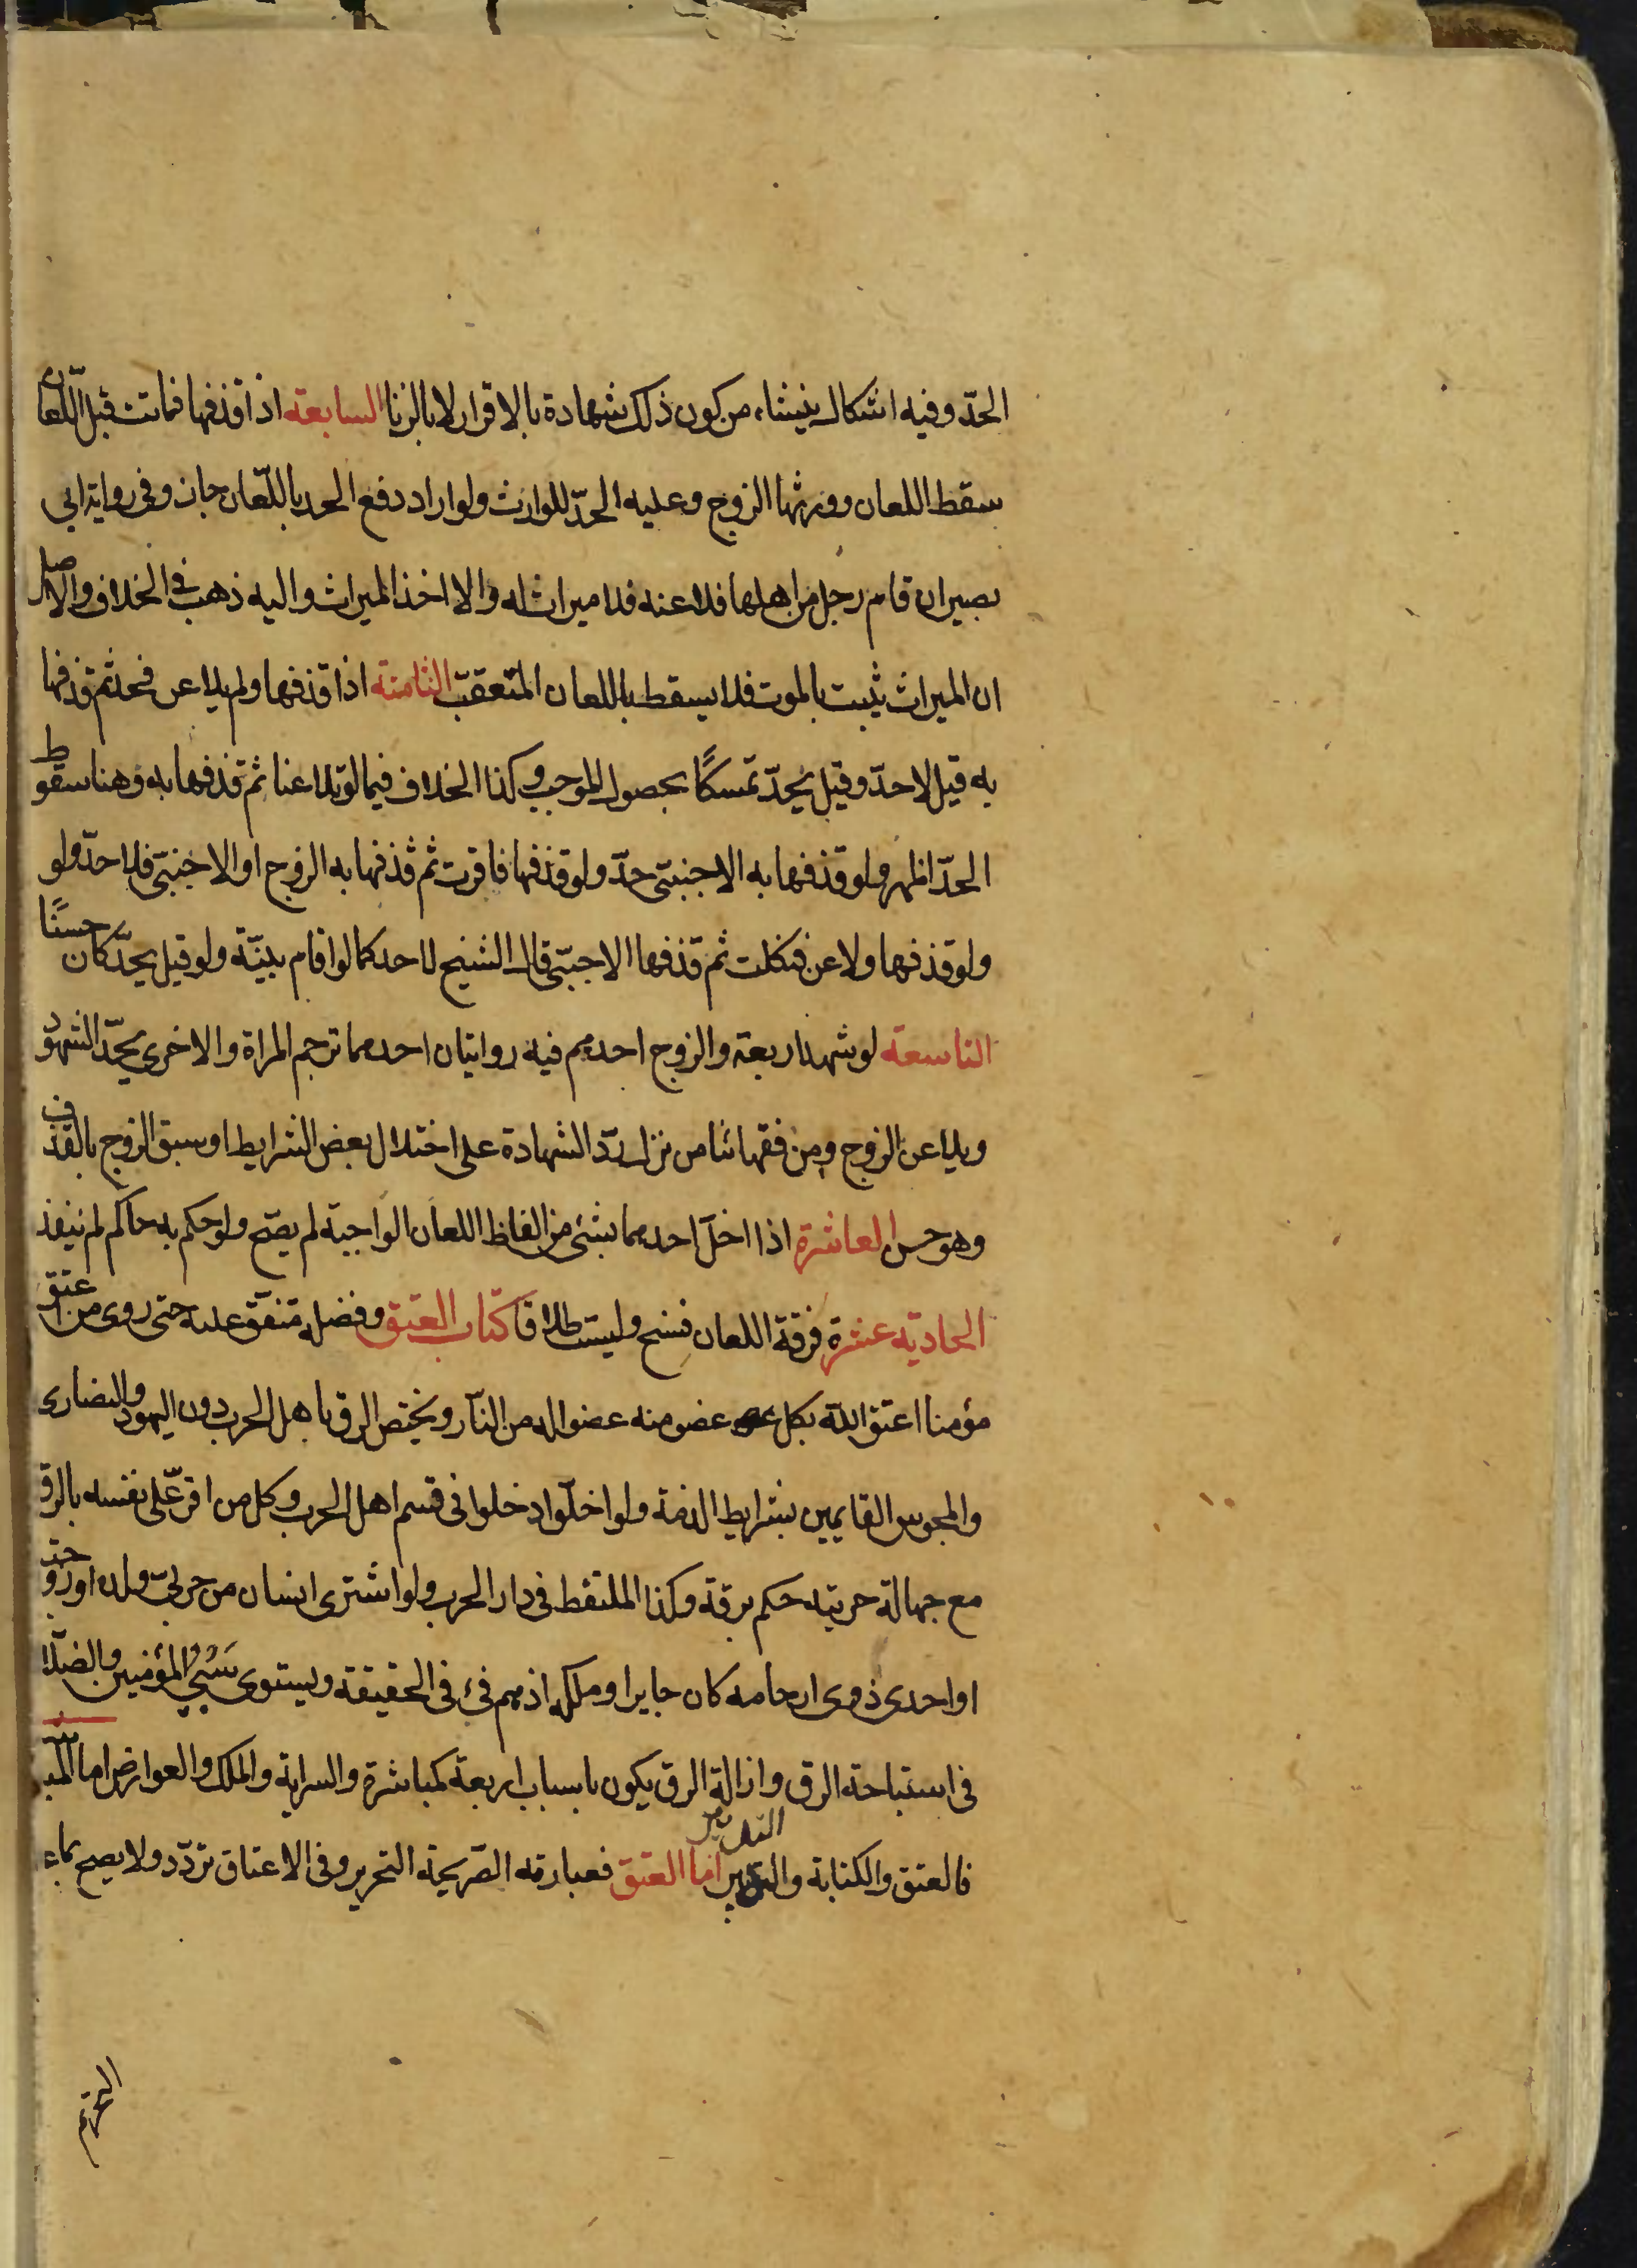 الحدّ وفيه اشكال ينشاء من كون ذلك شهادة بالاقرار لا بالزنا السابعة اذا قذفها فماتت قبل اللّعان
سقط اللعان وورثها الزوج وعليه الحدّ للوارث ولو اراد دفع الحد باللّعان جاز وفي رواية ابي
بصير ان قام رجل من اهلها فلاعنه فلا ميراث له والا اخذ الميراث واليه ذهب في الخلاف والاصل
ان الميراث ثبت بالموت فلا يسقط باللعان المتعقب الثامنة اذا قذفها ولم يلاعن فحد ثم قذفها
به قيل لا حدّ وقيل يحدّ تمسكًا بحصول الموجب وكذا الخلاف فيما لو تلاعنا ثم قذفها به وهنا سقوط
الحدّ اظهر ولو قذفها به الاجنبيّ حدّ ولو قذفها فاقرت ثم قذفها به الزوج او الاجنبيّ فلا حدّ ولو
ولو قذفها ولاعن فنكلت ثم قذفها الاجنبيّ قال الشيخ لا حد كما لو اقام بيّنة ولو قيل يحدّ كان حسنًا
التاسعة لو شهد اربعة والزوج احدهم فيه روايتان احدهما ترجم المراة والاخرى يحدّ الشهود
ويلاعن الزوج ومن فقهائنا من نزل ردّ الشهادة على اختلال بعض الشرايط او سبق الزوج بالقذف
وهو حسن العاشرة اذا اخلّ احدهما بشئ من الفاظ اللعان الواجبة لم يصّح ولو حكم به حاكم لم ينفذ
الحادية عشرة فرقة اللعان فسخ وليست طلاقا كتاب العتق وفضله متفق عليه حتى روى من اعتق
مؤمنا اعتق الله بكل عضو منه عضوا له من النّار ويختص الرق باهل الحرب دون اليهود والنصارى
والمجوس القايمين بشرايط الذمة ولو اخلّوا دخلوا في قسم اهل الحرب وكل من اقرّ على نفسه بالرق
مع جهالة حريته حكم برقة وكذا الملتقط في دار الحرب ولو اشترى انسان من حربيّ ولده او زوجته
او احدى ذوى ارحامه كان جايزا وملكه اذ هم فئ في الحقيقة ويستوى سَبْيُ المؤمنين والضلّال
في استباحة الرق وازالة الرق يكون باسباب اربعة كمباشرة والسراية والملك والعوارض اما
فالعتق والكتابة والتدبير التدبير اما العتق فعبارته الصّريحة التحرير وفي الاعتاق تردّد ولا يصح بماء